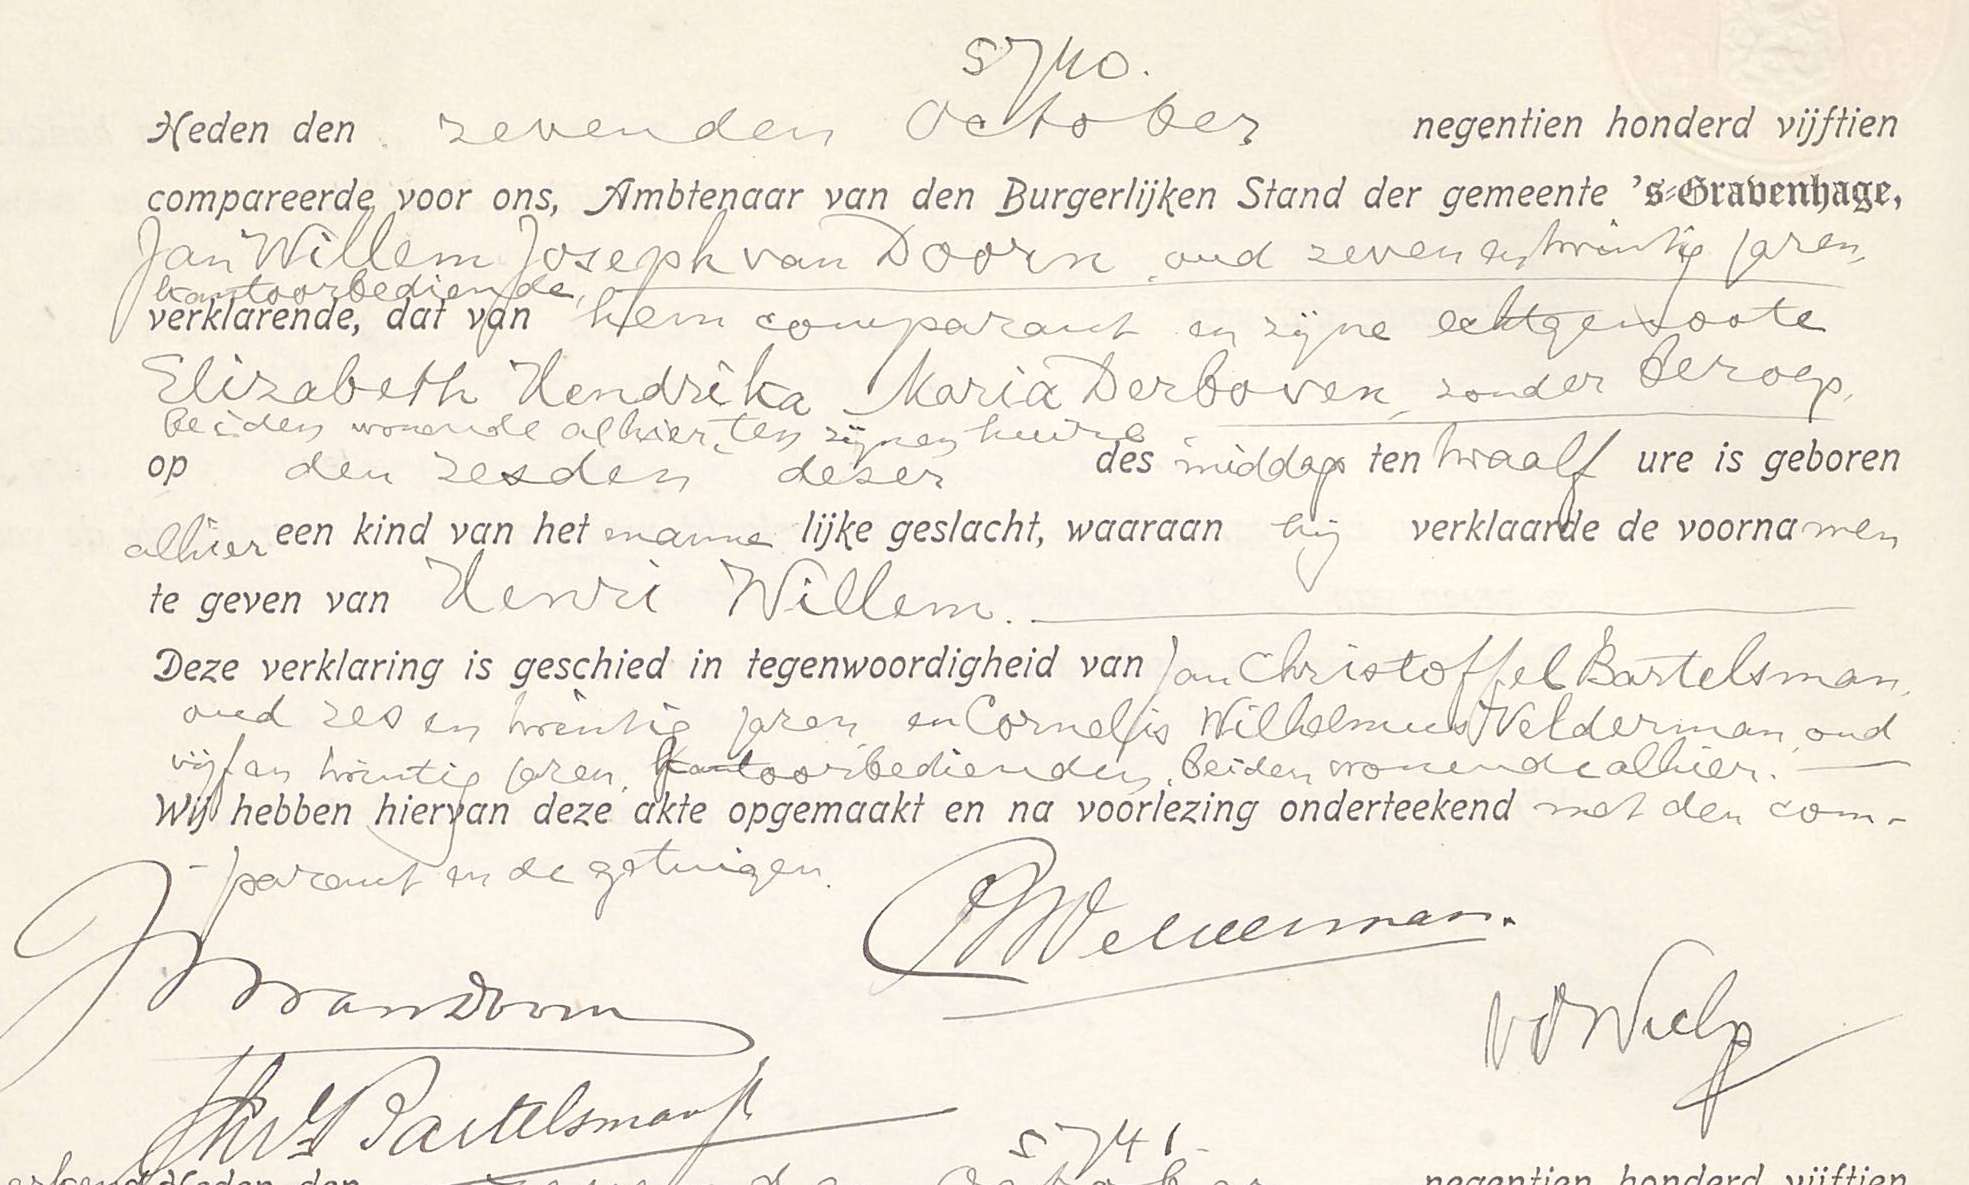 5740.
Heden den zevenden October negentien honderd vijftien
compareerde voor ons, Ambtenaar van den Burgerlijken Stand der gemeente 's-Gravenhage,
Jan Willem Joseph van Doorn, oud zeven en twintig jaren,
kantoorbediende,
verklarende, dat van hem comparant en zijne echtgenoote
Elizabeth Hendrika Maria Derboven, zonder beroep,
beiden wonende alhier, ten zijnen huize
op den zesden dezer des middags ten twaalf ure is geboren
alhier een kind van het manne lijke geslacht, waaraan hij verklaarde de voornamen
te geven van Henri Willem.
Deze verklaring is geschied in tegenwoordigheid van Jan Christoffel Bartelsman,
oud zes en twintig jaren en Cornelis Wilhelmus Welderman, oud
vijf en twintig jaren, kantoorbedienden, beiden wonende alhier.
Wij hebben hiervan deze akte opgemaakt en na voorlezing onderteekend met den com-
-parant en de getuigen.
JW van Doorn
Bartelsman
5741.
Heden den October negentien honderd vijftien